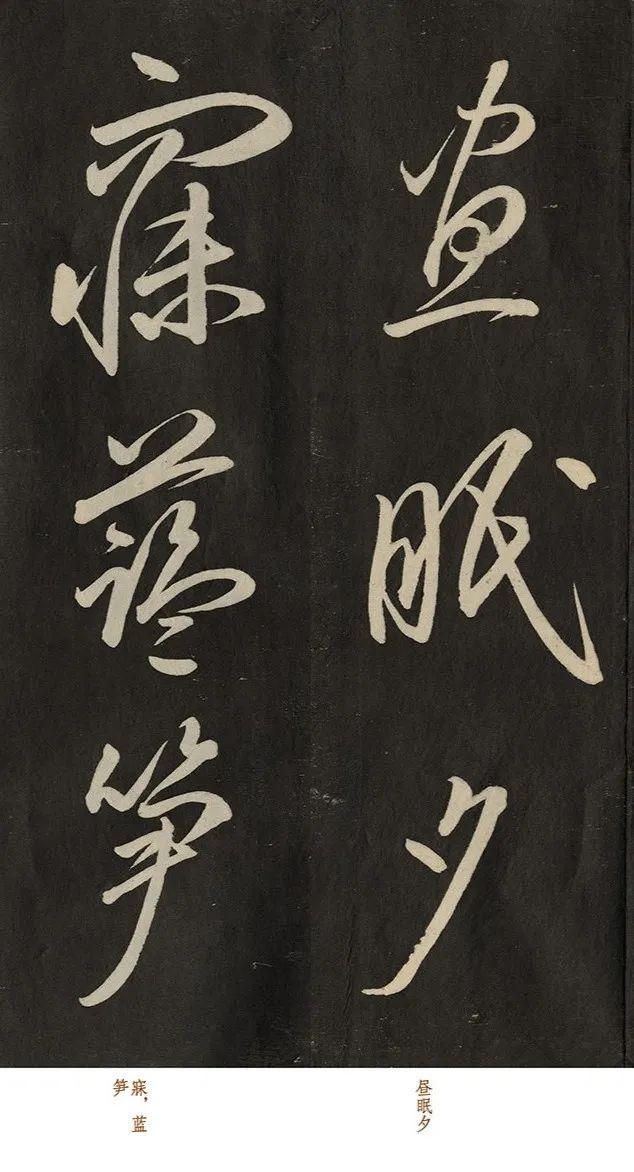 昼眠夕
寐蓝笋
昼眠夕
寐，蓝
笋